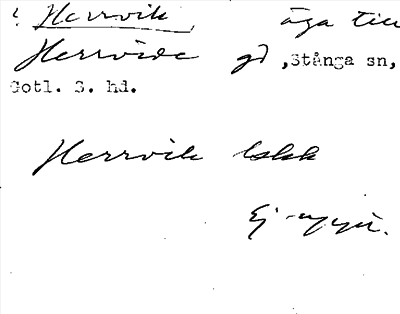 Herrvik, äga till
Herrvide gd, Stånga sn,
Gotl. S. hd.
Herrvik
Ej